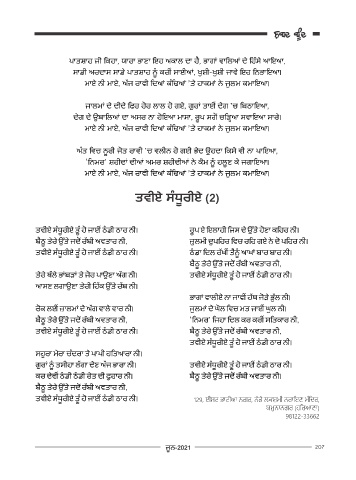 ਪਾਤਸ਼ਾਹ ਜੀ ਕਿਹਾ, ਯਾਰਾ ਭਾਣਾ ਇਹ ਅਕਾਲ ਦਾ ਹੈ, ਭਾਗਾਂ ਵਾਲਿਆਂ ਦੇ ਹਿੱਸੇ ਆਇਆ,
ਸਾਡੀ ਅਰਦਾਸ ਸਾਡੇ ਪਾਤਸ਼ਾਹ ਨੂੰ ਕਰੀਂ ਸਾਈਂਆਂ, ਖੁਸ਼ੀ-ਖੁਸ਼ੀ ਜਾਵੇ ਇਹ ਨਿਭਾਇਆ।
ਮਾਏ ਨੀ ਮਾਏ, ਅੱਜ ਰਾਵੀ ਦਿਆਂ ਕੰਢਿਆਂ 'ਤੇ ਹਾਕਮਾਂ ਨੇ ਜ਼ੁਲਮ ਕਮਾਇਆ।
ਜ਼ਾਲਮਾਂ ਦੇ ਦੀਦੇ ਫਿਰ ਹੋਰ ਲਾਲ ਹੋ ਗਏ, ਗੁਰਾਂ ਤਾਈਂ ਦੇਗ 'ਚ ਬਿਠਾਇਆ,
ਦੇਗ ਦੇ ਉਬਾਲਿਆਂ ਦਾ ਅਸਰ ਨਾ ਹੋਇਆ ਮਾਸਾ, ਰੂਪ ਸਗੋਂ ਚੜ੍ਹਿਆ ਸਵਾਇਆ ਸਾਰੇ।
ਮਾਏ ਨੀ ਮਾਏ, ਅੱਜ ਰਾਵੀ ਦਿਆਂ ਕੰਢਿਆਂ 'ਤੇ ਹਾਕਮਾਂ ਨੇ ਜ਼ੁਲਮ ਕਮਾਇਆ।
ਅੰਤ ਵਿਚ ਨੂਰੀ ਜੋਤ ਰਾਵੀ 'ਚ ਵਲੀਨ ਹੋ ਗਈ ਭੇਦ ਉਹਦਾ ਕਿਸੇ ਵੀ ਨਾ ਪਾਇਆ,
'ਨਿਮਰ' ਸ਼ਹੀਦਾਂ ਦੀਆਂ ਅਮਰ ਸ਼ਹੀਦੀਆਂ ਨੇ ਕੌਮ ਨੂੰ ਹਲੂਣ ਕੇ ਜਗਾਇਆ।
ਮਾਏ ਨੀ ਮਾਏ, ਅੱਜ ਰਾਵੀ ਦਿਆਂ ਕੰਢਿਆਂ 'ਤੇ ਹਾਕਮਾਂ ਨੇ ਜ਼ੁਲਮ ਕਮਾਇਆ।
ਤਵੀਏ ਸੰਧੂਰੀਏ (2)
ਤਵੀਏ ਸੰਧੂਰੀਏ ਤੂੰ ਹੋ ਜਾਈਂ ਠੰਡੀ ਠਾਰ ਨੀ।
ਬੈਠੂ ਤੇਰੇ ਉੱਤੇ ਜਦੋਂ ਰੱਬੀ ਅਵਤਾਰ ਨੀ,
ਤਵੀਏ ਸੰਧੂਰੀਏ ਤੂੰ ਹੋ ਜਾਈਂ ਠੰਡੀ ਠਾਰ ਨੀ।
ਤੇਰੇ ਥੱਲੇ ਭਾਂਬੜਾਂ ਤੋਂ ਜ਼ੋਰ ਪਾਉਣਾ ਅੱਗ ਨੀ।
ਆਸਣ ਲਗਾਉਣਾ ਤੇਰੀ ਹਿੱਕ ਉੱਤੇ ਰੱਬ ਨੀ।
ਰੋਕ ਲਈਂ ਜ਼ਾਲਮਾਂ ਦੇ ਅੱਗ ਵਾਲੇ ਵਾਰ ਨੀ।
ਬੈਠੂ ਤੇਰੇ ਉੱਤੇ ਜਦੋਂ ਰੱਬੀ ਅਵਤਾਰ ਨੀ,
ਤਵੀਏ ਸੰਧੂਰੀਏ ਤੂੰ ਹੋ ਜਾਈਂ ਠੰਡੀ ਠਾਰ ਨੀ।
ਸਹੁਰਾ ਮੇਰਾ ਚੰਦਰਾ ਤੇ ਪਾਪੀ ਹਤਿਆਰਾ ਨੀ।
ਗੁਰਾਂ ਨੂੰ ਤਸੀਹਾ ਲੱਗਾ ਦੇਣ ਅੱਜ ਭਾਰਾ ਨੀ।
ਕਰ ਦੇਵੀਂ ਠੰਡੀ ਠੰਡੀ ਰੇਤ ਦੀ ਫੁਹਾਰ ਨੀ।
ਬੈਠੂ ਤੇਰੇ ਉੱਤੇ ਜਦੋਂ ਰੱਬੀ ਅਵਤਾਰ ਨੀ,
ਤਵੀਏ ਸੰਧੂਰੀਏ ਤੂੰ ਹੋ ਜਾਈਂ ਠੰਡੀ ਠਾਰ ਨੀ।
ਰੂਪ ਏ ਇਲਾਹੀ ਜਿਸ ਦੇ ਉੱਤੇ ਹੋਣਾ ਕਹਿਰ ਨੀ।
ਜ਼ੁਲਮੀ ਦੁਪਹਿਰ ਵਿਚ ਰਹਿ ਗਏ ਨੇ ਦੋ ਪਹਿਰ ਨੀ।
ਠੰਡਾ ਦਿਲ ਰੱਖੀਂ ਤੈਨੂੰ ਆਖਾਂ ਬਾਰ ਬਾਰ ਨੀ।
ਬੈਠੂ ਤੇਰੇ ਉੱਤੇ ਜਦੋਂ ਰੱਬੀ ਅਵਤਾਰ ਨੀ,
ਤਵੀਏ ਸੰਧੂਰੀਏ ਤੂੰ ਹੋ ਜਾਈਂ ਠੰਡੀ ਠਾਰ ਨੀ।
ਭਾਗਾਂ ਵਾਲੀਏ ਨਾ ਜਾਵੀਂ ਹੱਥ ਜੋੜੇ ਭੁੱਲ ਨੀ।
ਜ਼ੁਲਮਾਂ ਦੇ ਘੋਲ ਵਿਚ ਮਤ ਜਾਈਂ ਘੁਲ ਨੀ।
'ਨਿਮਰ' ਜਿਹਾ ਦਿਲ ਕਰ ਕਰੀਂ ਸਤਿਕਾਰ ਨੀ,
ਬੈਠੂ ਤੇਰੇ ਉੱਤੇ ਜਦੋਂ ਰੱਬੀ ਅਵਤਾਰ ਨੀ,
ਤਵੀਏ ਸੰਧੂਰੀਏ ਤੂੰ ਹੋ ਜਾਈਂ ਠੰਡੀ ਠਾਰ ਨੀ।
ਤਵੀਏ ਸੰਧੂਰੀਏ ਤੂੰ ਹੋ ਜਾਈਂ ਠੰਡੀ ਠਾਰ ਨੀ।
ਬੈਠੂ ਤੇਰੇ ਉੱਤੇ ਜਦੋਂ ਰੱਬੀ ਅਵਤਾਰ ਨੀ।
129, ਈਸ਼ਰ ਭਾਟੀਆ ਨਗਰ, ਨੇੜੇ ਲਕਸ਼ਮੀ ਨਰਾਇਣ ਮੰਦਿਰ,
ਯਮੁਨਾਨਗਰ (ਹਰਿਆਣਾ)
98122-33662
ਜੂਨ-2021
207